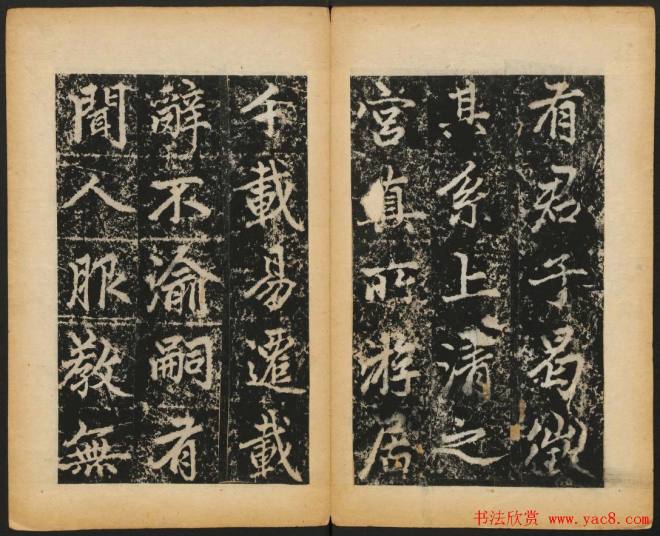 有君子曷徵
其系上清之
宮真所游居
千載易遷載
辭不渝嗣者
聞人服教無
书法欣赏 www.yac8.com